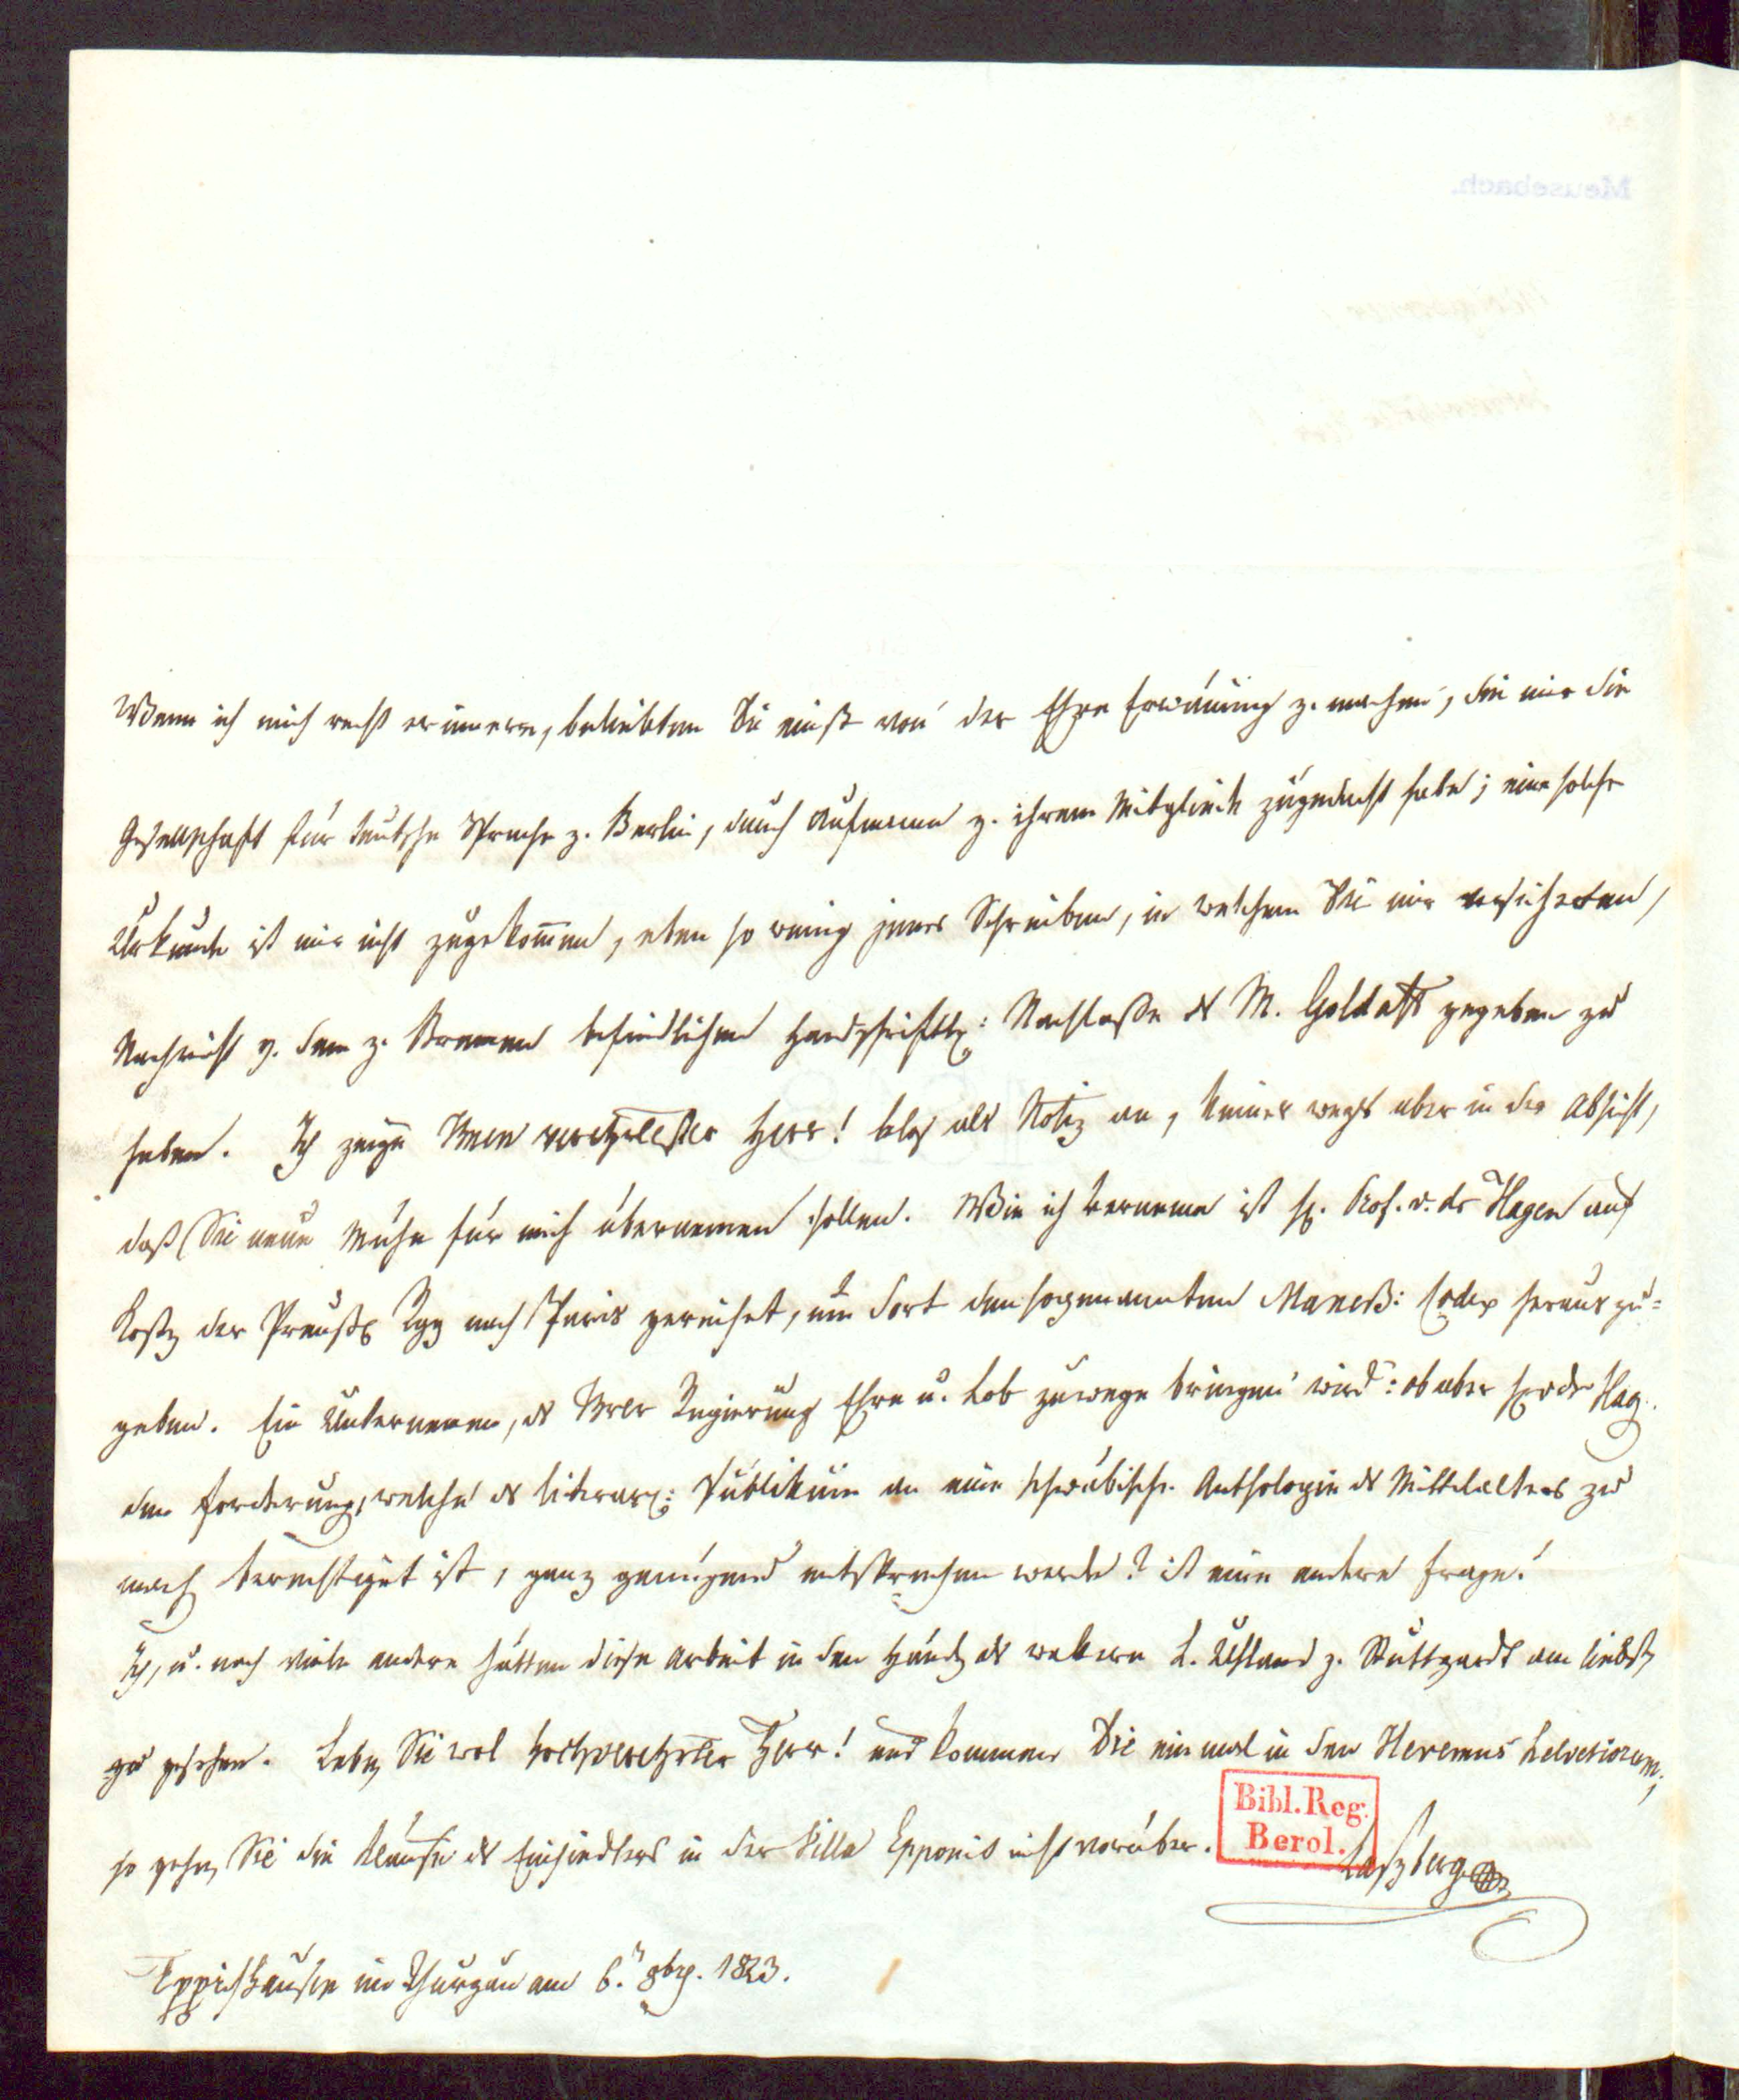 Wenn ich mich recht erinnere, beliebten Sie einst von der Ehre Erwänung z. machen, die mir die
Gesellschaft für teutsche Sprache z. Berlin, durch Aufname z. ihrem Mitgliede zugedacht habe; eine solche
Urkunde ist mir nicht zugekom̅en, eben so wenig jenes Schreiben, in welchem Sie mir versicherten,
Nachricht v. dem z. Bremen befindlichen handschriftl: Nachlasse des M. Goldasts gegeben zu
haben. Ich zeige Inen verehrtester Herr! blos als Notiz an, keines wegs aber in der Absicht,
daß Sie neue Mühe für mich übernemen sollen. Wie ich verneme ist H. Prof. v. der Hagen auf
Kosten der Preuß Rgg nach Paris gereiset, um dort den sogenannten Maneß: Codex herauszu=
geben. Ein Unternemen, das Irer Regierung Ehre u. Lob zuwege bringen wird: ob aber H. v der Hag.
den Forderungen, welche das literar: Publikum an eine schwäbische Anthologie des Mittelalters zu
machen berechtiget ist, ganz genügend entsprechen werde? ist eine andere Frage!
Ich, u. noch viele andere hätten diese Arbeit in den Händen des wakern L. Uhland z. Stuttgardt am liebsten
gesehen. Leben Sie wol hochverehrter Herr! und kommen Sie einmal in den Heremus helvetiorum;
so gehen Sie die Klause des Einsiedlers in der Villa Epponis nicht vorüber.
Laßberg
Bibl. Reg.
Berol.
Eppishausen im Thurgau am 6. 8br. 1823.
Meusebach.